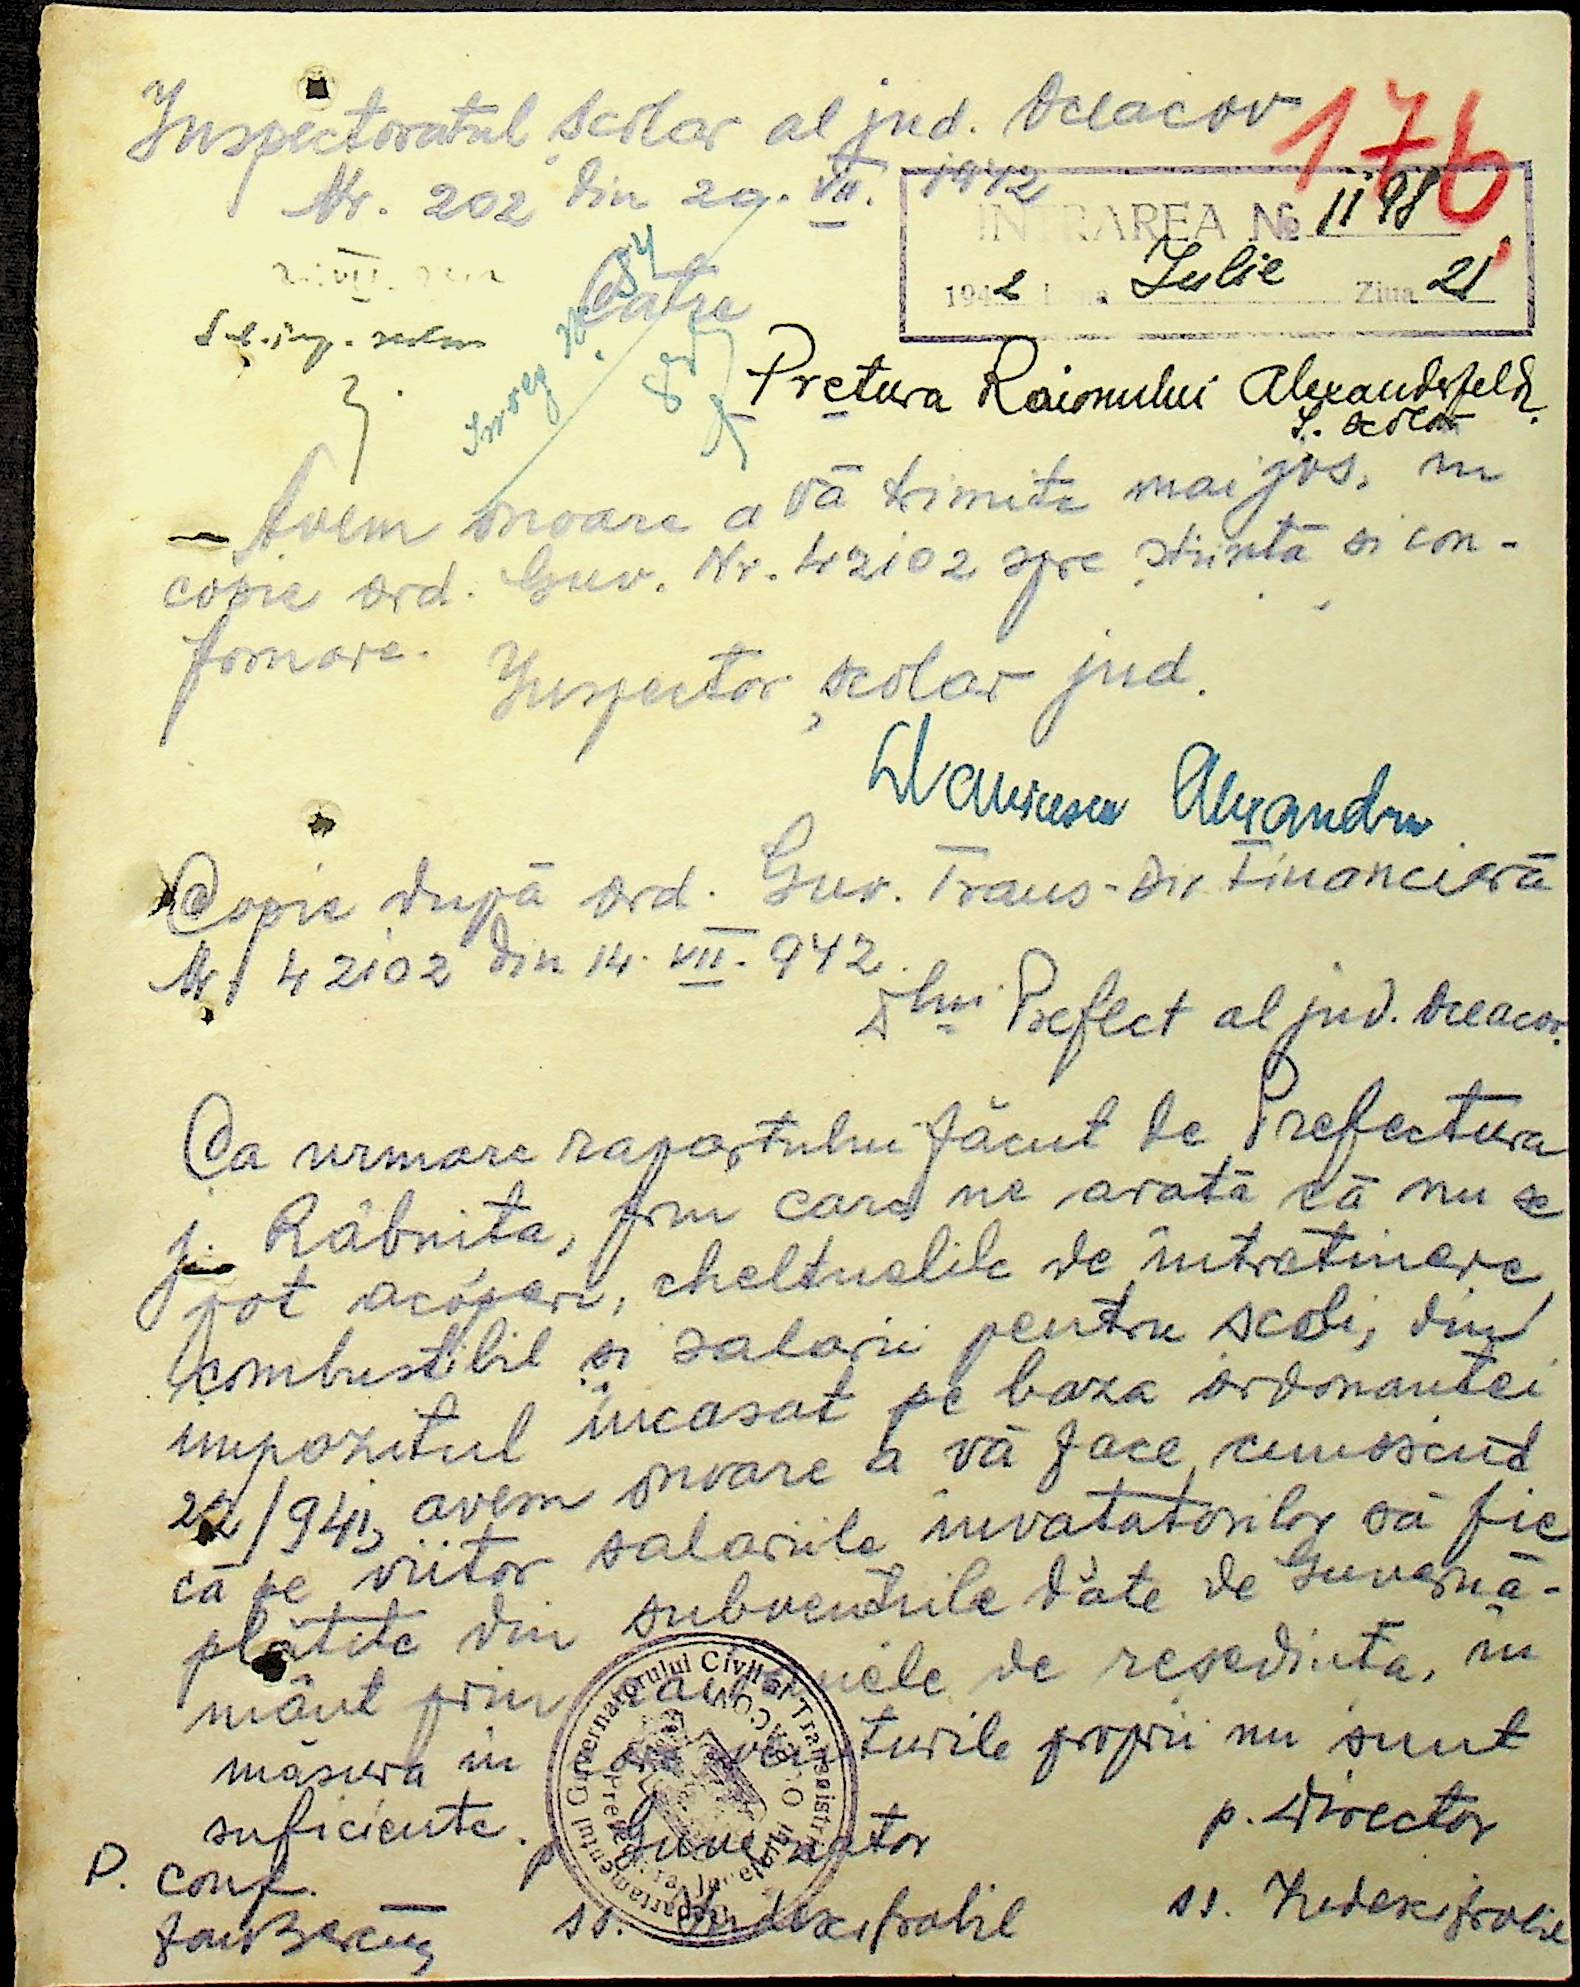 Inspectoratul școlar al jud. Oceacov
176
Nr. 202 din 20. VII. 1942
INTRAREA № 1198
1942 Luna Iulie Ziua 21
Către
Pretura Raionului Alexanderfeld
S. școlar
Avem onoare a vă trimite mai jos, în
copie ord. Guv. Nr. 42102 spre știință și con-
formare.
Inspector școlar jud.
Alexandru
Copie după ord. Guv. Trans-Dir. Financiară
Nr 42102 din 14. VII. 942.
Dlui Prefect al jud. Oceacov.
Ca urmare raportului făcut de Prefectura
j. Râbnita, prin care ne arată că nu se
pot acoperi, cheltuelile de întretinere,
combustibil si salarii pentru scoli, din
impozitul încasat pe baza ordonantei
22/941, avem onoare a vă face cunoscut
că pe viitor salariile învatatorilor să fie
plătite din subventiile date de Guvernă-
mânt prin de resedinta, în
măsura în care veniturile proprii nu sunt
suficiente.
p. Guvernator
p. Director
P. conf.
ss.
ss.